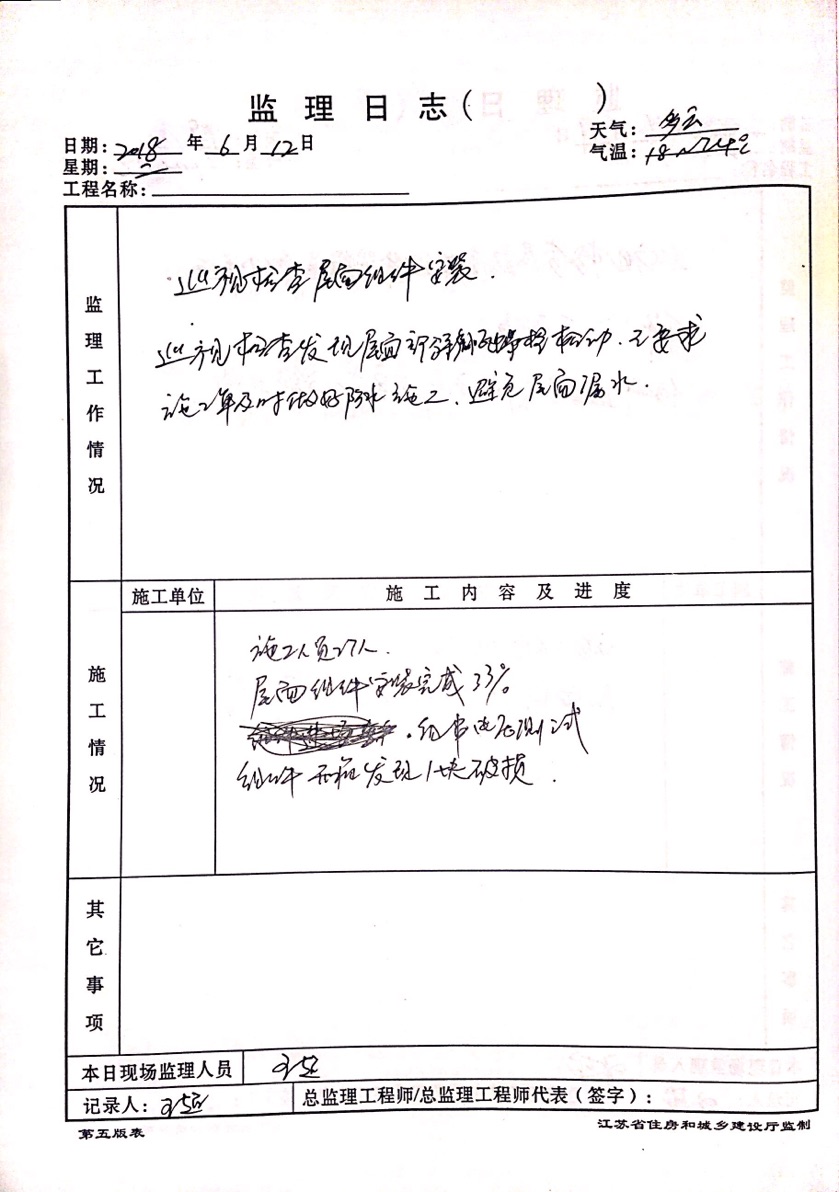 监 理 日 志（ ）
日期：2018 年 6 月 12 日
天气：多云
星期：二
气温：18～24℃
工程名称：
监理工作情况
巡视检查屋面组件安装.
巡视检查发现屋面部分 松动.已要求
施工单及时做好防水施工、避免屋面漏水.
施工单位
施 工 内 容 及 进 度
施工情况
施工人员27人.
屋面组件安装完成33%
.组串电压测试
组件开箱发现1块破损.
其它事项
本日现场监理人员
记录人：
总监理工程师/总监理工程师代表（签字）：
第五版表
江苏省住房和城乡建设厅监制